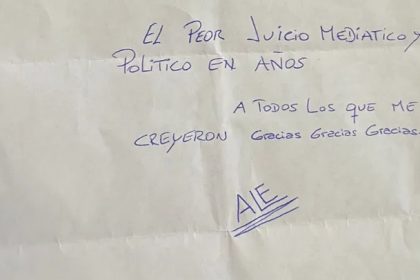 EL PEOR JUICIO MEDIATICO Y
POLITICO EN AÑOS
A TODOS LOS QUE ME
CREYERON Gracias Gracias Gracias.
ALE